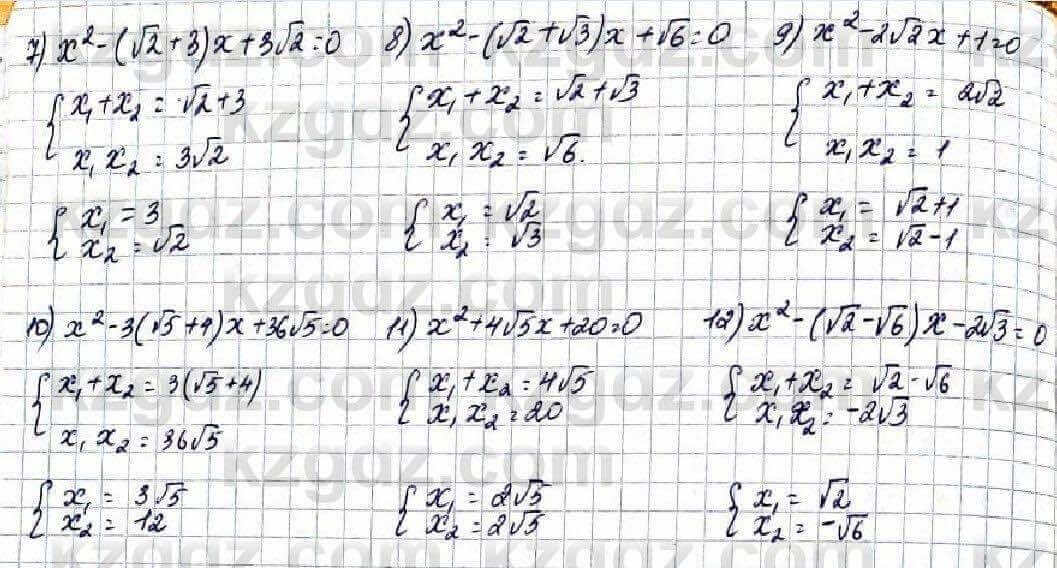 7) x² - (√2 + 3)x + 3√2 = 0
{ x₁ + x₂ = √2 + 3
x₁ x₂ = 3√2
{ x₁ = 3
x₂ = √2
8) x² - (√2 + √3)x + √6 = 0
{ x₁ + x₂ = √2 + √3
x₁ x₂ = √6.
{ x₁ = √2
x₂ = √3
9) x² - 2√2x + 1 = 0
{ x₁ + x₂ = 2√2
x₁ x₂ = 1
{ x₁ = √2 + 1
x₂ = √2 - 1
10) x² - 3(√5 + 4)x + 36√5 = 0
{ x₁ + x₂ = 3(√5 + 4)
x₁ x₂ = 36√5
{ x₁ = 3√5
x₂ = 12
11) x² + 4√5x + 20 = 0
{ x₁ + x₂ = 4√5
x₁ x₂ = 20
{ x₁ = 2√5
x₂ = 2√5
12) x² - (√2 - √6)x - 2√3 = 0
{ x₁ + x₂ = √2 - √6
x₁ x₂ = -2√3
{ x₁ = √2
x₂ = -√6
kzgdz.com